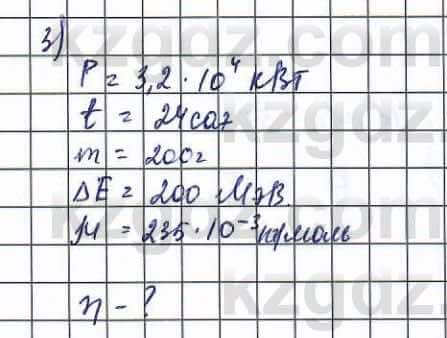 3)
P = 3,2 · 10⁴ кВт
t = 24 саг
m = 200г
ΔE = 200 МэВ.
μ = 235 · 10⁻³ кг/моль
η - ?
kzgdz.com
kzgdz
kzgdz.com
kzgdz
kzgdz.com
kzgdz